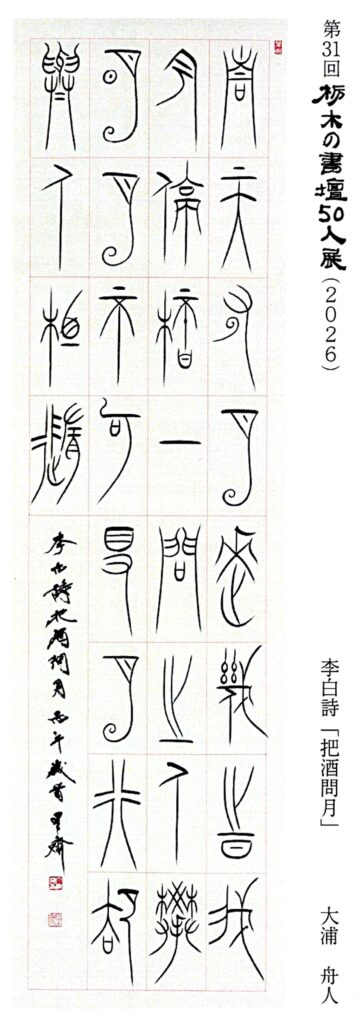 第31回 栃木の書壇50人展（2026）
李白詩「把酒問月」
大浦 舟人
青天有月來幾時我
今停杯一問之人攀
明月不可得月行却
與人相隨
李白詩把酒問月 丙午歳首